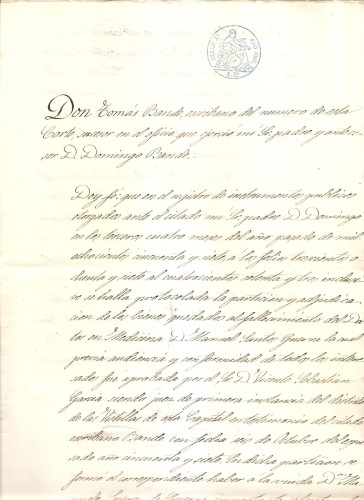 Don Tomás Bande, escribano del numero de esta
Corte, sucesor en el oficio que ejercio mi Sr. padre y antece-
sor D. Domingo Bande.
Doy fé: que en el registro de instrumentos publicos
otorgados ante el citado mi Sr. padre D. Domingo
en los terceros cuatro meses del año pasado de mil
ochocientos cincuenta y siete, a los folios trescientos o-
chenta y siete al cuatrocientos setenta y tres inclusi-
ve se halla protocolada la particion y adjudica-
cion de los bienes quedados al fallecimiento del Doc-
tor en Medicina D. Manuel Santos Guerra la cual
previa audiencia y conformidad de todos los intere-
sados fue aprobada por el Sr. D. Vicente Sebastian
Garcia siendo juez de primera instancia del distrito
de las Vistillas de esta Capital en testimonio del citado
escribano Bande con fecha seis de Octubre del espre-
sado año cincuenta y siete. En dicha particion se
formo el correspondiente haber a la viuda D.ª Ma-